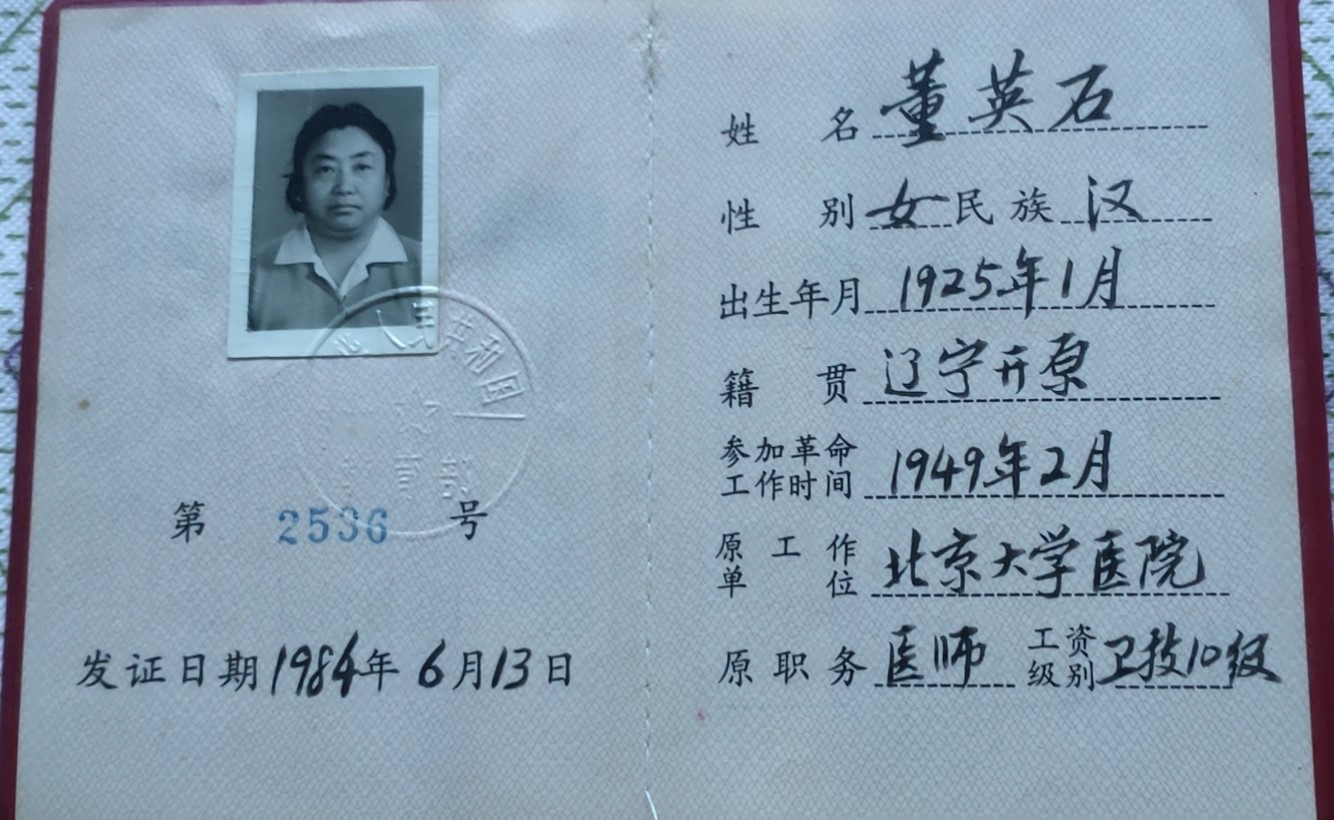 人民共和国
育部
第 2536 号
发证日期1984年 6月13日
姓 名 董英石
性 别 女 民族 汉
出生年月 1925年1月
籍 贯 辽宁开原
参加革命
工作时间 1949年2月
原工作
单位 北京大学医院
原职务 医师 工资
级别 卫技10级